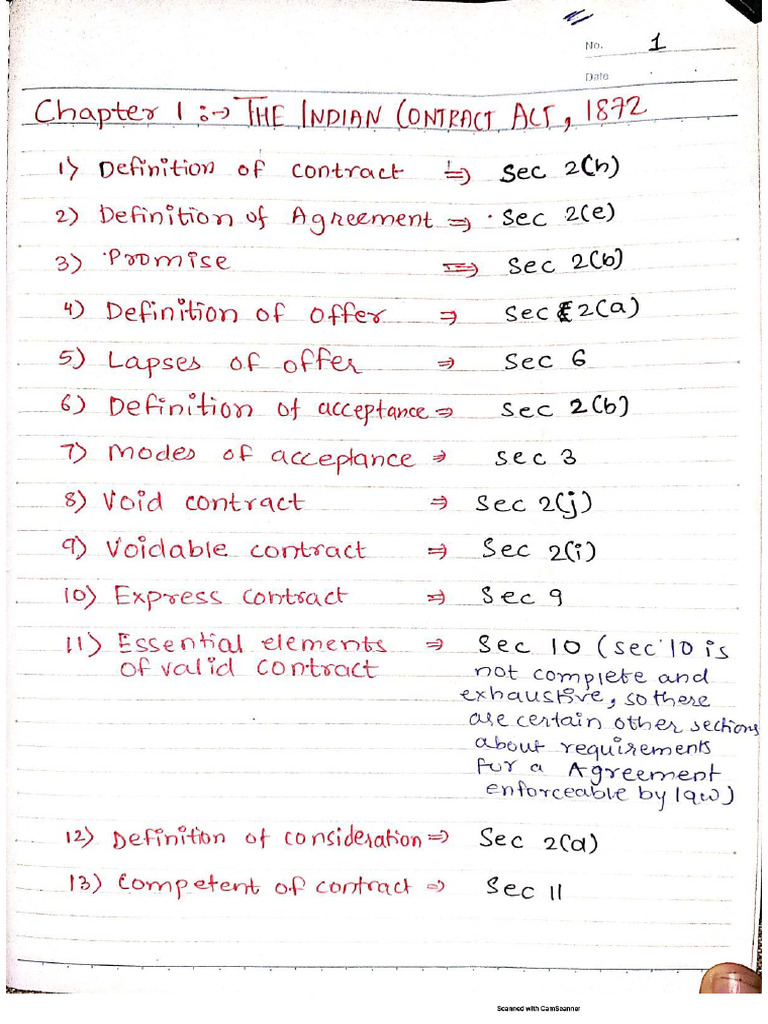 No. 1
Date
Chapter 1 :-> THE INDIAN CONTRACT ACT, 1872
1) Definition of contract => Sec 2(h)
2) Definition of Agreement => Sec 2(e)
3) Promise => Sec 2(b)
4) Definition of offer => Sec 2(a)
5) Lapses of offer => Sec 6
6) Definition of acceptance => Sec 2(b)
7) Modes of acceptance => Sec 3
8) Void contract => Sec 2(j)
9) Voidable contract => Sec 2(i)
10) Express contract => Sec 9
11) Essential elements => Sec 10 (sec 10 is
of valid contract not complete and
exhaustive, so there
are certain other sections
about requirements
for a Agreement
enforceable by law)
12) Definition of consideration => Sec 2(d)
13) Competent of contract => Sec 11
Scanned with CamScanner